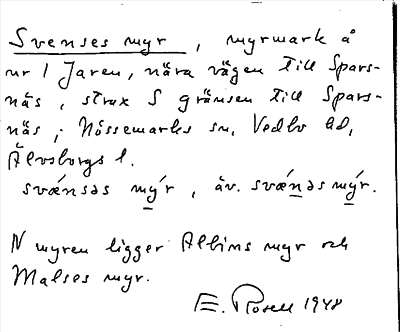 Svenses myr, myrmark å
nr 1 Jaren, nära vägen till Spars-
näs, strax S gränsen till Spars-
näs; Nössemarks sn, Vedbo hd,
Älvsborgs l.
svǽnsəs mý̱r, äv. svǽṉəs mý̱r.
N myren ligger Albins myr och
Malses myr.
E. Rosell 1948